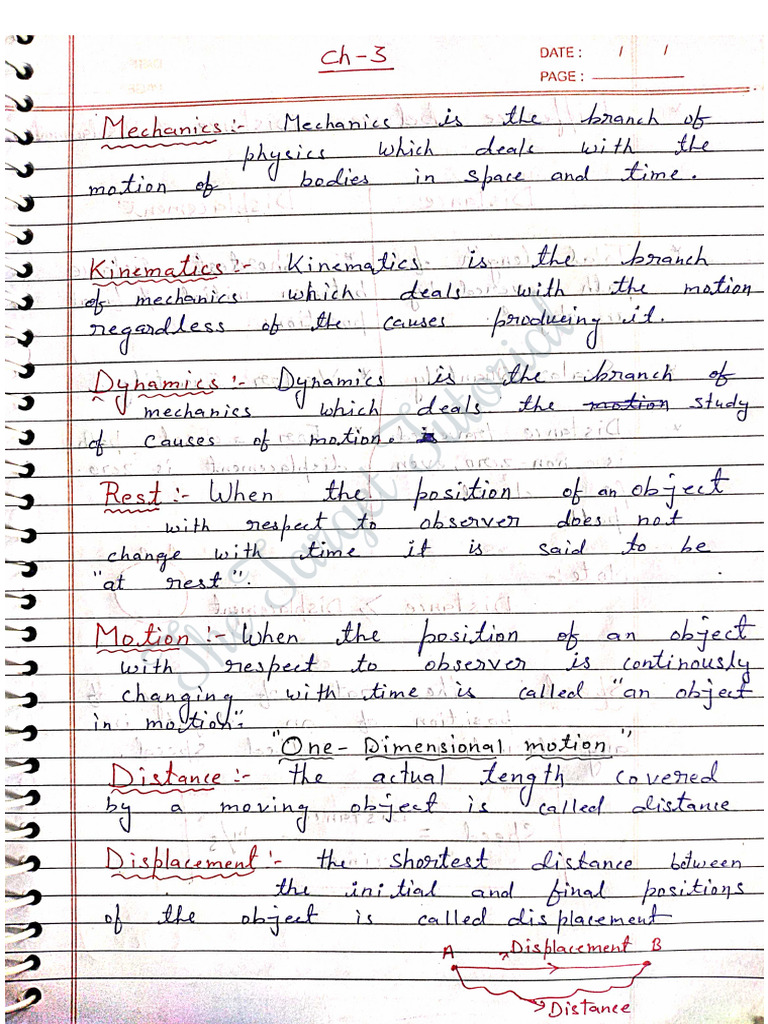 Ch-3
DATE : / /
PAGE :
Mechanics :- Mechanics is the branch of
physics which deals with the
motion of bodies in space and time.
Kinematics :- Kinematics is the branch
of mechanics which deals with the motion
regardless of the causes producing it.
Dynamics :- Dynamics is the branch of
mechanics which deals the motion study
of causes of motion.
Rest :- When the position of an object
with respect to observer does not
change with time it is said to be
"at rest".
Motion :- When the position of an object
with respect to observer is continously
changing with time is called "an object
in motion".
"One-Dimensional motion"
Distance :- the actual length covered
by a moving object is called distance
Displacement :- the shortest distance between
the initial and final positions
of the object is called displacement
A Displacement B
Distance
The Target Tutorial